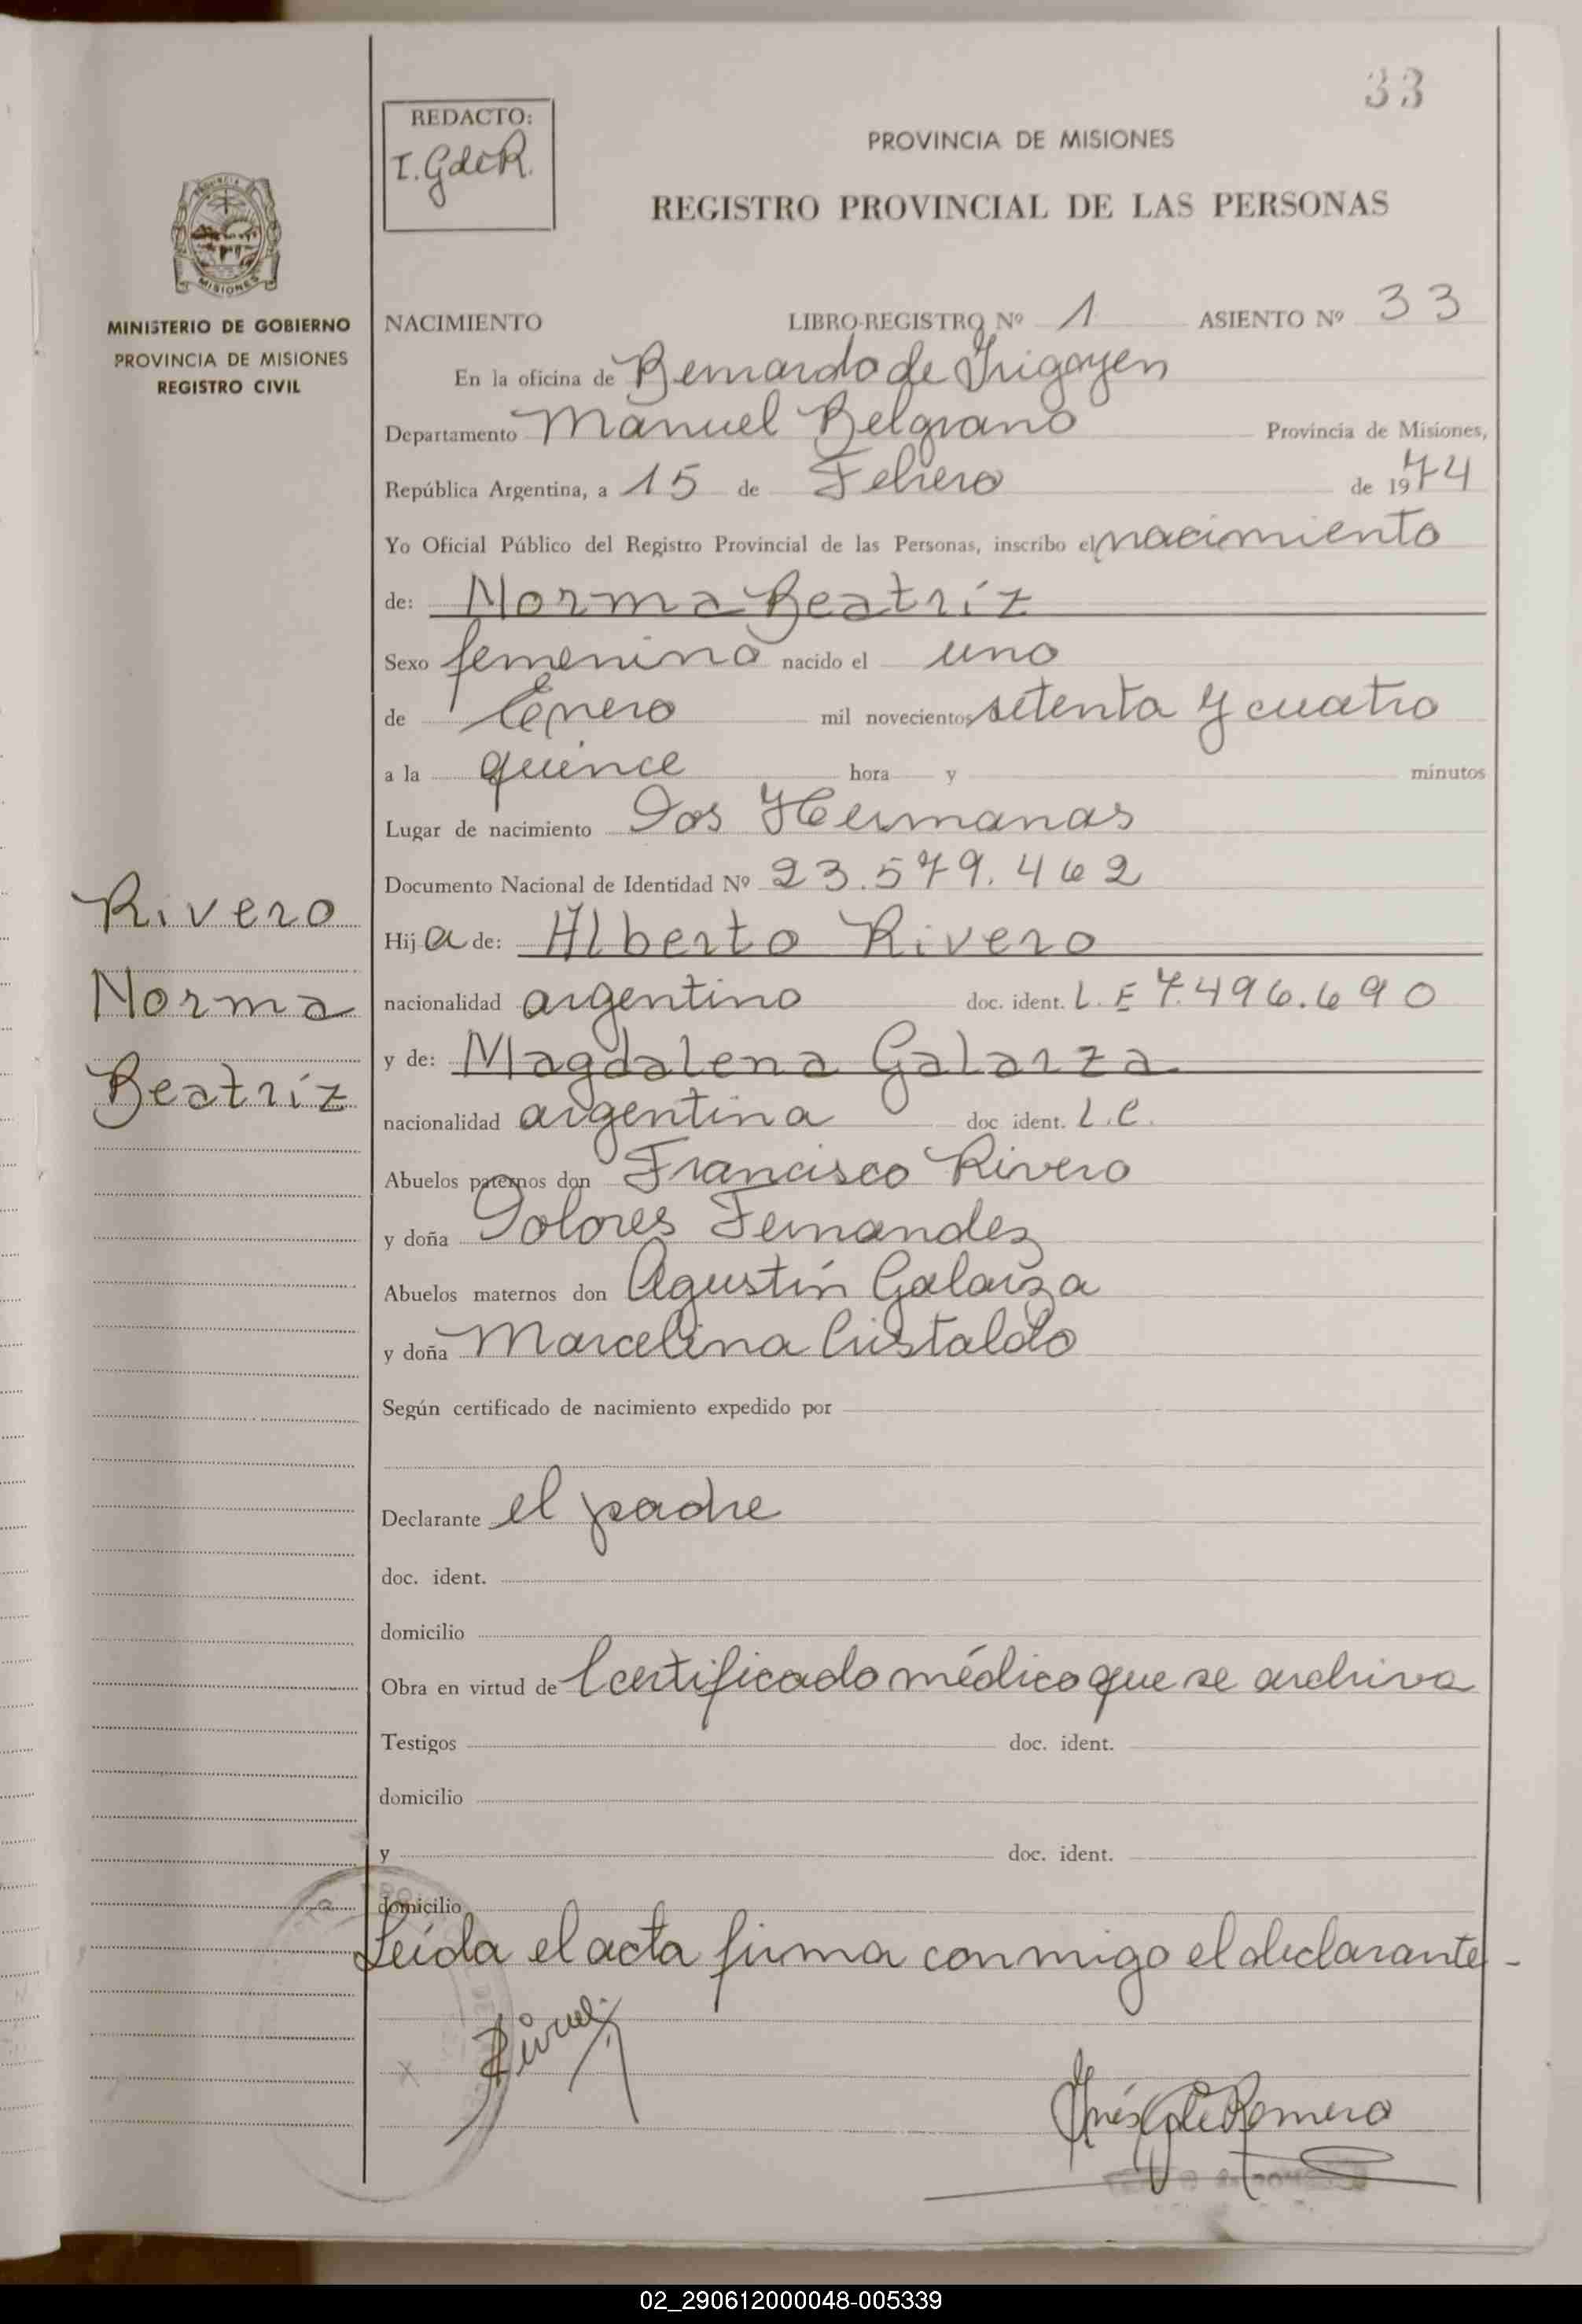 33
REDACTO:
I. GdeR.
PROVINCIA DE MISIONES
REGISTRO PROVINCIAL DE LAS PERSONAS
PROVINCIA
MISIONES
MINISTERIO DE GOBIERNO
PROVINCIA DE MISIONES
REGISTRO CIVIL
NACIMIENTO LIBRO-REGISTRO Nº 1 ASIENTO Nº 33
En la oficina de Bernardo de Irigoyen
Departamento Manuel Belgrano Provincia de Misiones,
República Argentina, a 15 de Febrero de 1974
Yo Oficial Público del Registro Provincial de las Personas, inscribo el nacimiento
de: Norma Beatríz
Sexo femenino nacido el uno
de Enero mil novecientos setenta y cuatro
a la quince hora y minutos
Lugar de nacimiento Dos Hermanas
Documento Nacional de Identidad Nº 23.579.462
Rivero
Norma
Beatríz
Hija de: Alberto Rivero
nacionalidad argentino doc. ident. L.E 7.496.690
y de: Magdalena Galarza
nacionalidad argentina doc ident. L.C.
Abuelos paternos don Francisco Rivero
y doña Dolores Fernandez
Abuelos maternos don Agustín Galarza
y doña Marcelina Cristaldo
Según certificado de nacimiento expedido por
Declarante el padre
doc. ident.
domicilio
Obra en virtud de Certificado médico que se archiva
Testigos doc. ident.
domicilio
y doc. ident.
domicilio
Leída el acta firma conmigo el declarante -
x
Inés G de Romero
02_290612000048-005339